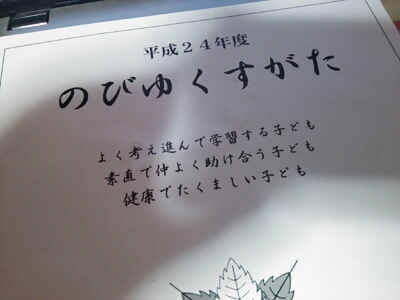 平成24年度
のびゆくすがた
よく考え進んで学習する子ども
素直で仲よく助け合う子ども
健康でたくましい子ども